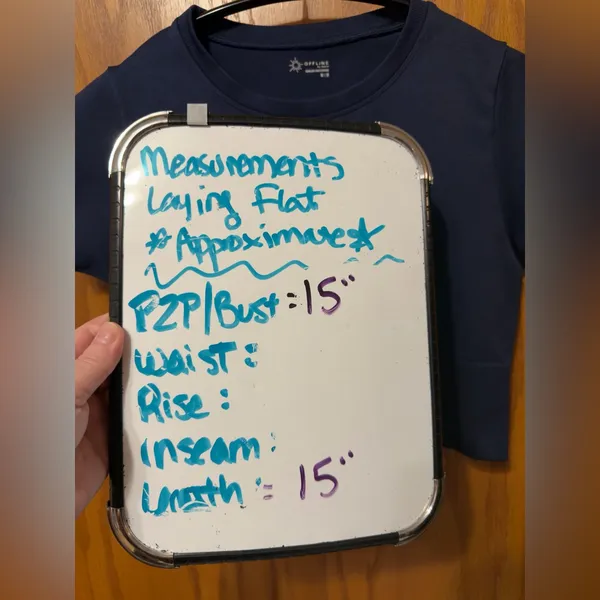 OFFLINE
Measurements
Laying Flat
*Approximate*
P2P/Bust:15"
Waist:
Rise:
Inseam:
Length: 15"